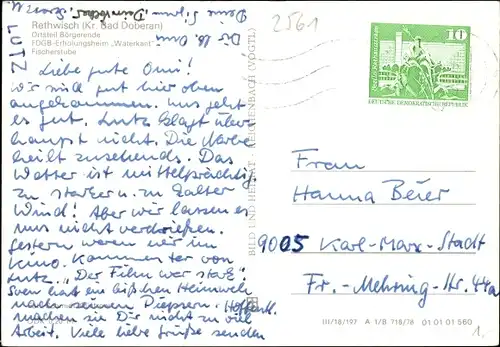 Rethwisch (Kr. Bad Doberan)
Ortsteil Börgerende
FDGB-Erholungsheim „Waterkant"
Fischerstube
Liebe gute Omi!
Wir sind gut hier oben
angekommen. Uns geht
es gut. Lutz klagt über-
haupt nicht. Die Narbe
heilt zusehends. Das
Wetter ist mittelprächtig
zu starker u. zu kalter
Wind! Aber wir lassen es
uns nicht verdrießen.
Gestern waren wir im
Kino. Kommentar von
Lutz: „Der Film war stark!"
Sven hat ein bißchen Heimweh
nach seinen Piepsern. Hoffentl.
machen sie Dir nicht zu viel
Arbeit. Viele liebe Grüße senden
Dir, lb. Omi
LUTZ
BILD UND HEIMAT REICHENBACH (VOGTL)
2561
10
DEUTSCHE DEMOKRATISCHE REPUBLIK
Frau
Hanna Beier
9005 Karl-Marx-Stadt
Fr.-Mehring-Str. 44a
III/18/197 A 1/B 718/76 01 01 01 560
1.